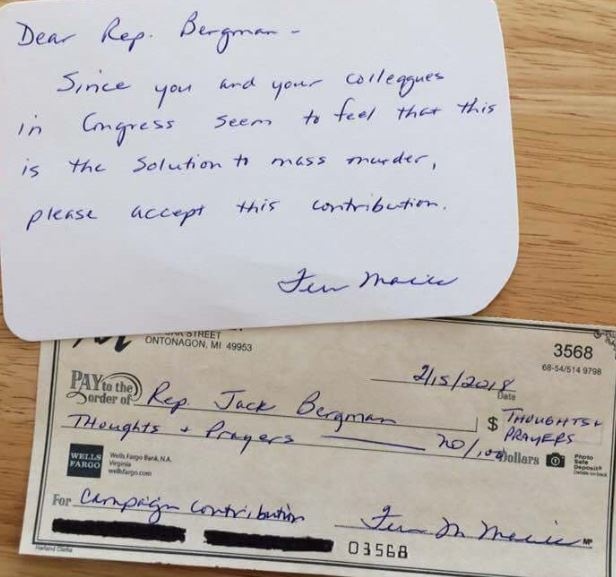 Dear Rep. Bergman -
Since you and your colleagues
in Congress seem to feel that this
is the solution to mass murder,
please accept this contribution.
STREET
ONTONAGON, MI 49953
3568
68-54/514 9798
2/15/2018
Date
PAY to the
order of Rep Jack Bergman $ THOUGHTS &
PRAYERS
Thoughts & Prayers no/100 Dollars
Photo
Safe
Deposit®
Details on back
WELLS
FARGO
Wells Fargo Bank, N.A.
Virginia
wellsfargo.com
For Campaign Contribution
MP
03568
Harland Clarke